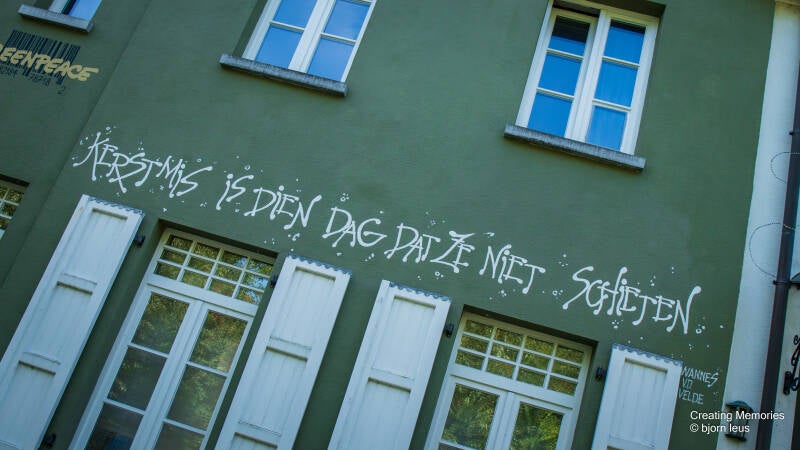 GREENPEACE
KERSTMIS IS DIEN DAG DAT ZE NIET SCHIETEN
WANNES
VD
VELDE
Creating Memories
© bjorn leus